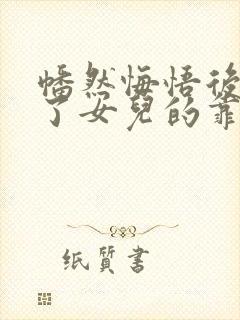 幡然悔悟後
了女兒的靠
纸質書